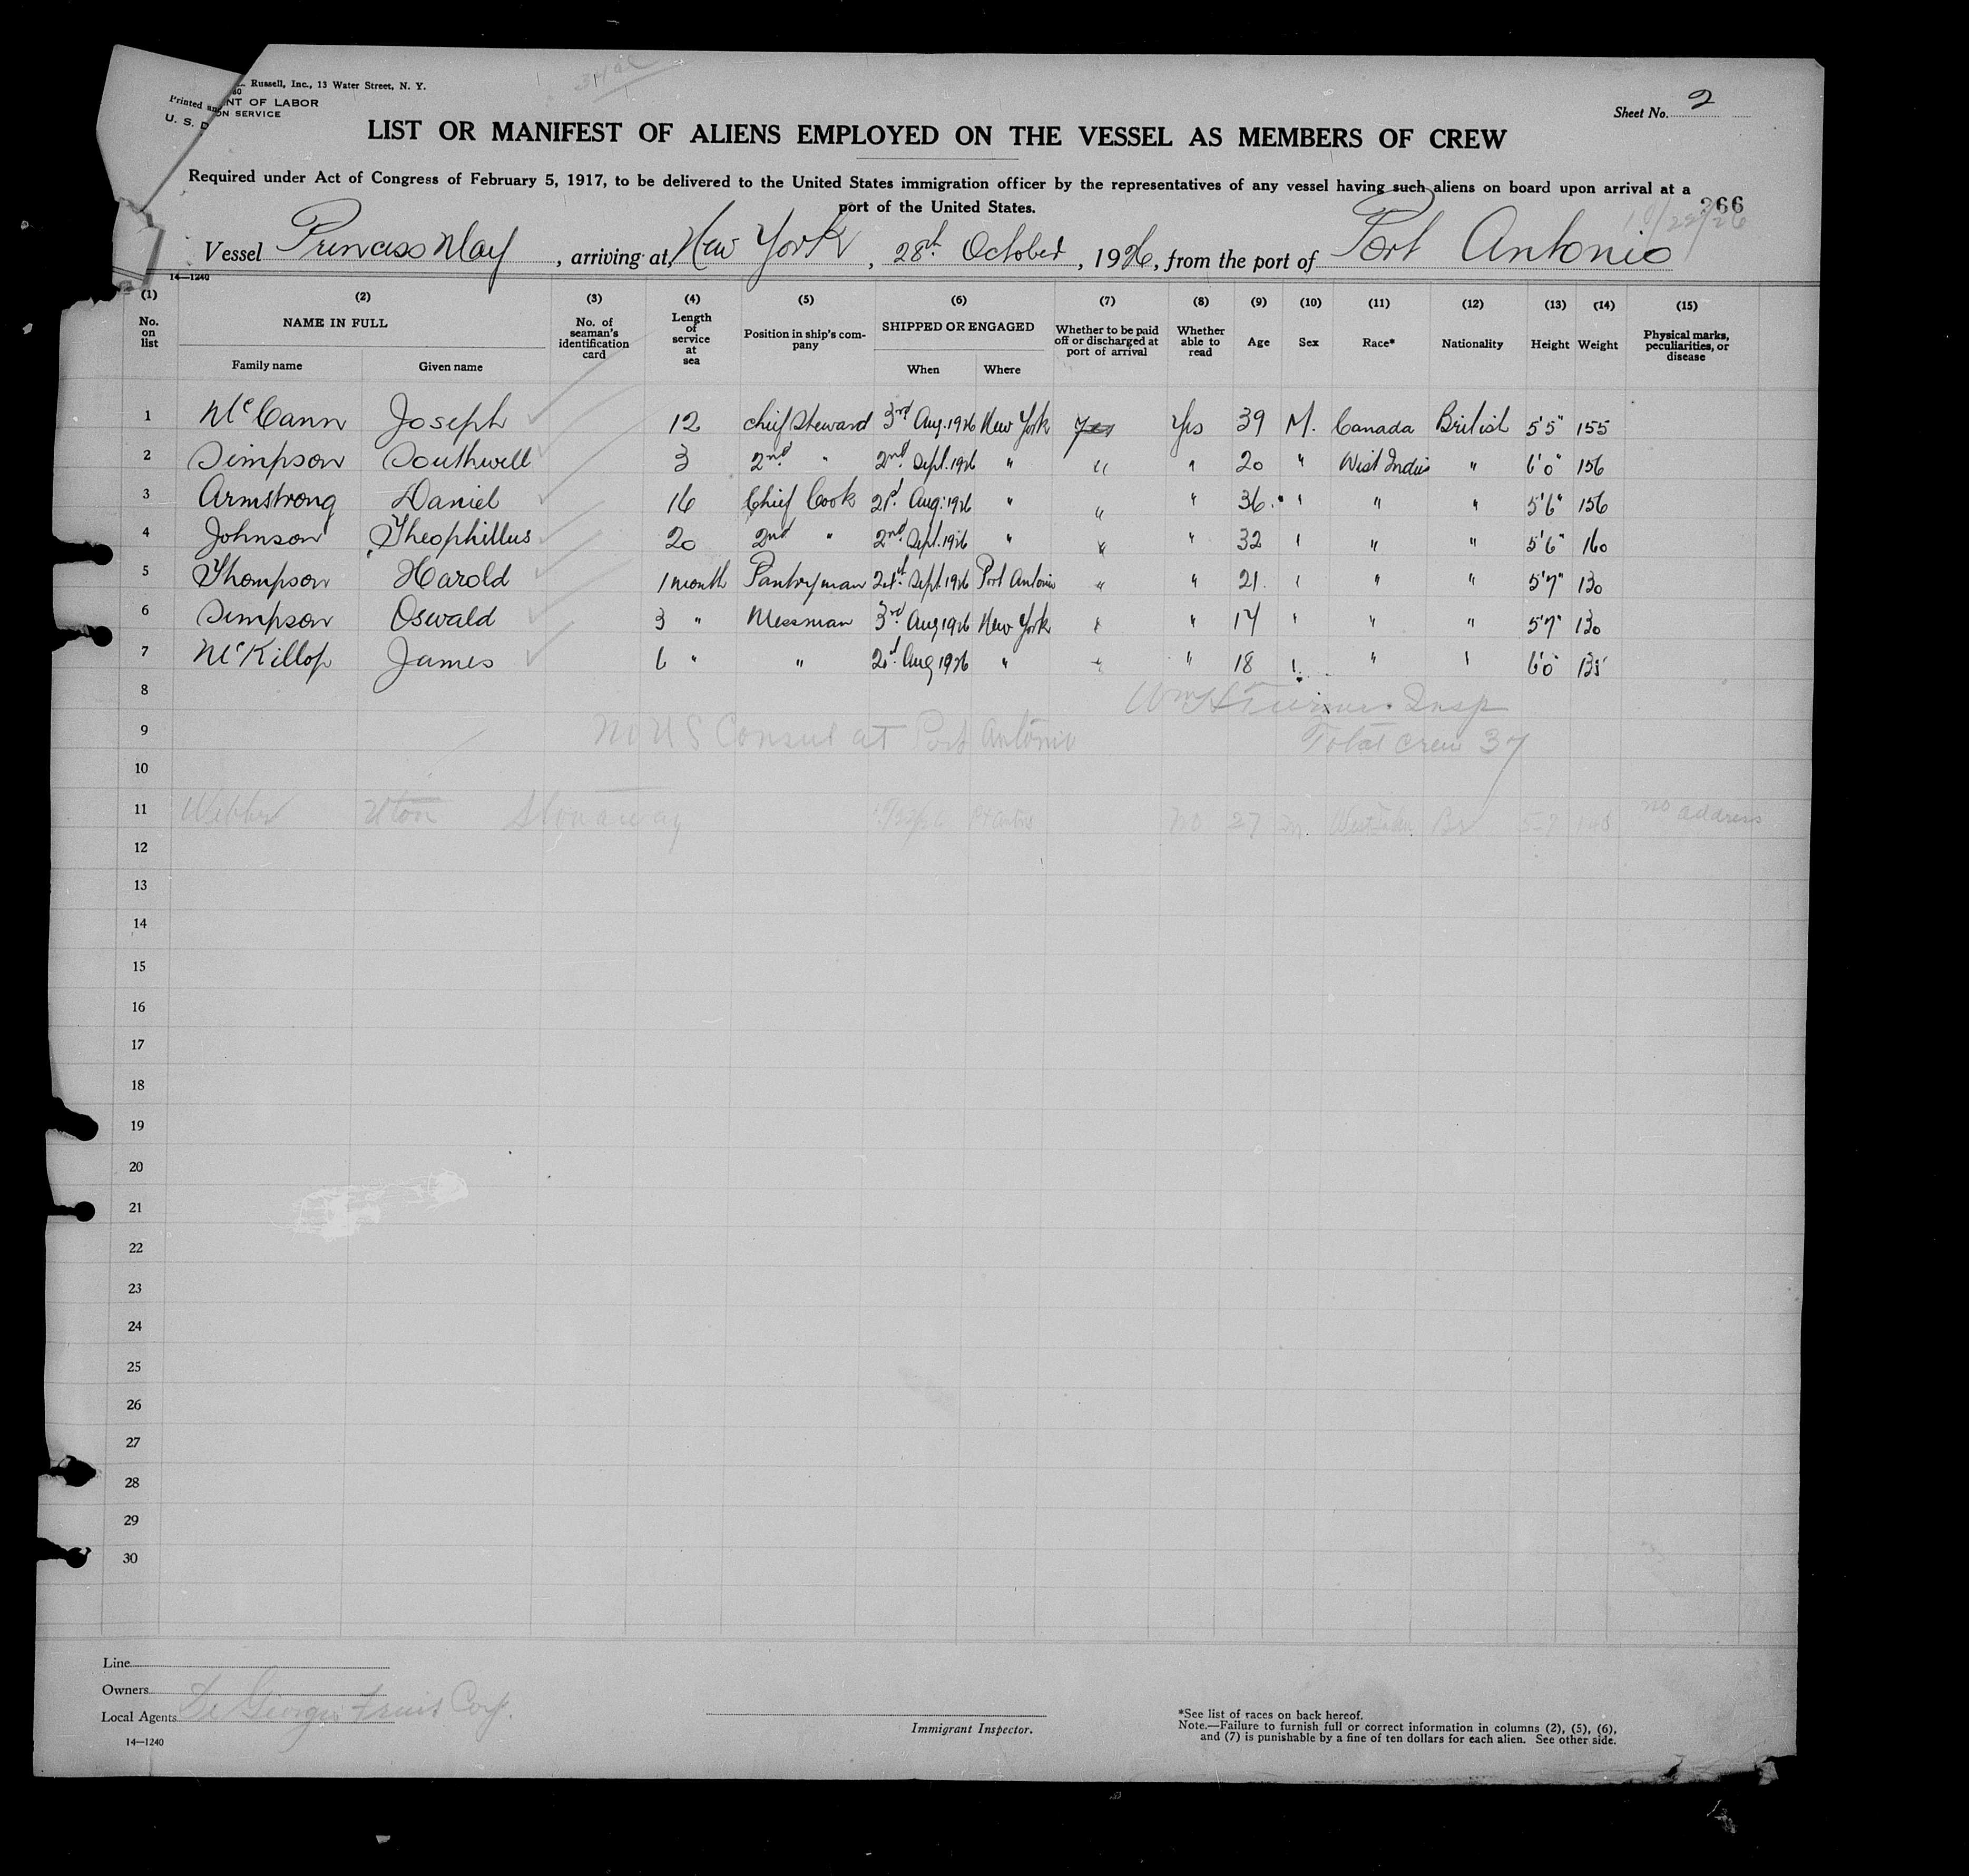 Russell, Inc., 13 Water Street, N. Y.
Printed and
NT OF LABOR
U. S. D
ON SERVICE
Sheet No. 2
LIST OR MANIFEST OF ALIENS EMPLOYED ON THE VESSEL AS MEMBERS OF CREW
Required under Act of Congress of February 5, 1917, to be delivered to the United States immigration officer by the representatives of any vessel having such aliens on board upon arrival at a
port of the United States.
266
10/29/26
Vessel Princess May, arriving at New York, 28th October, 1926, from the port of Port Antonio
14—1240
(1) (2) (3) (4) (5) (6) (7) (8) (9) (10) (11) (12) (13) (14) (15)
No. on list NAME IN FULL Family name Given name No. of seaman's identification card Length of service at sea Position in ship's company SHIPPED OR ENGAGED When Where Whether to be paid off or discharged at port of arrival Whether able to read Age Sex Race* Nationality Height Weight Physical marks, peculiarities, or disease
1 McCann Joseph 12 Chief Steward 3rd Aug. 1926 New York Yes Yes 39 M. Canada British 5'5" 155
2 Simpson Southwell 3 2nd " 2nd Sept. 1926 " " " 20 " West Indies " 6'0" 156
3 Armstrong Daniel 16 Chief Cook 21st Aug. 1926 " " " 36 " " " 5'6" 156
4 Johnson Theophillus 20 2nd " 2nd Sept. 1926 " " " 32 " " " 5'6" 160
5 Thompson Harold 1 month Pantryman 21st Sept. 1926 Port Antonio " " 21 " " " 5'7" 130
6 Simpson Oswald 3 " Messman 3rd Aug 1926 New York " " 17 " " " 5'7" 130
7 McKillop James 6 " " 21st Aug 1926 " " " 18 " " " 6'0 135
8
Wm H Turner Insp
9 No US Consul at Port Antonio Total crew 37
10
11 Webber Stowaway No 27 m. Br 5-7 no address
12
13
14
15
16
17
18
19
20
21
22
23
24
25
26
27
28
29
30
Line
Owners
Local Agents Di Giorgio Fruit Corp.
14—1240
Immigrant Inspector.
*See list of races on back hereof.
Note.—Failure to furnish full or correct information in columns (2), (5), (6),
and (7) is punishable by a fine of ten dollars for each alien. See other side.